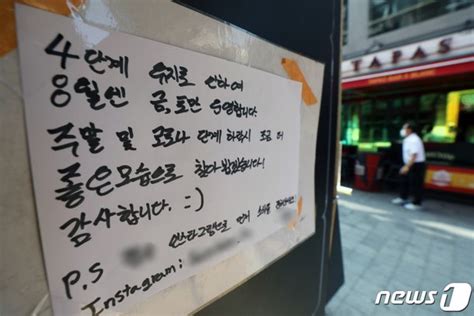 4단계 유지로 인하여
8월엔 금,토만 운영합니다.
주말 및 코로나 단계 하락시 조금 더
좋은모습으로 찾아 뵙겠습니다!
감사합니다. :)
P.S 인스타그램으로
Instagram:
TAPAS
news1